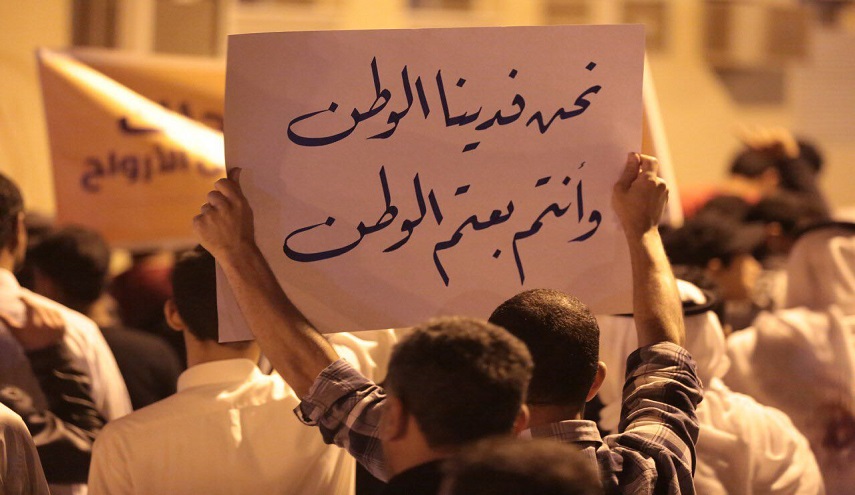 نحن فدينا الوطن
وأنتم بعتم الوطن
الأرواح